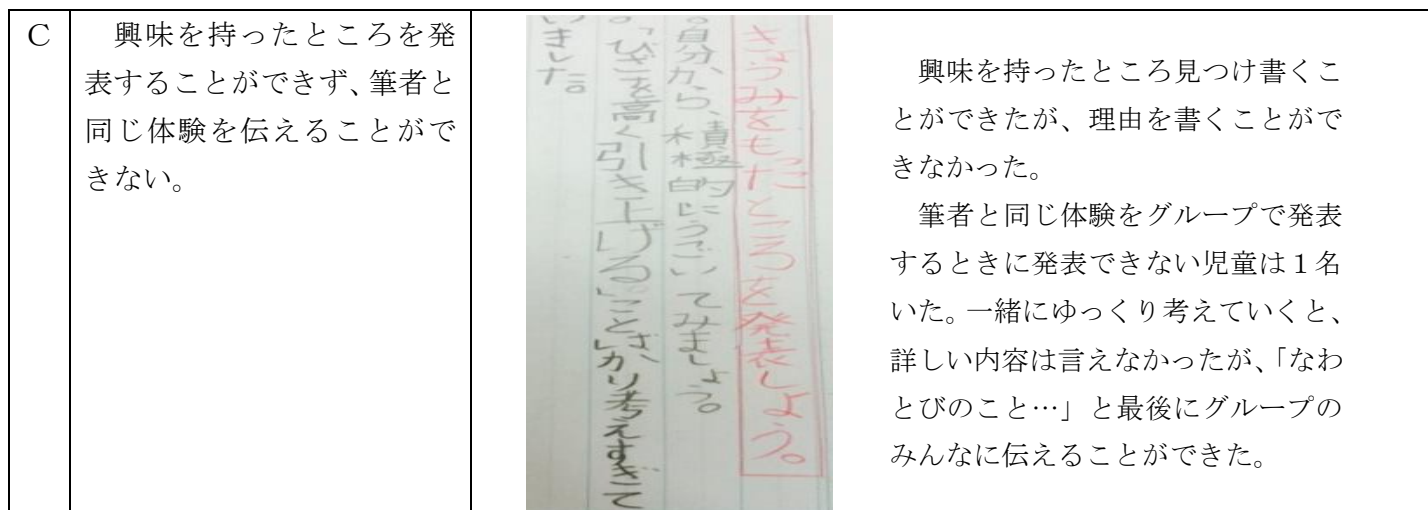 C
興味を持ったところを発
表することができず、筆者と
同じ体験を伝えることがで
きない。
きょうみをもったところを発表しよう。
。自分から、積極的にうごいてみましょう。
。「ひざを高く引き上げる」ことばかり考えすぎて
いました。
興味を持ったところ見つけ書くこ
とができたが、理由を書くことがで
きなかった。
筆者と同じ体験をグループで発表
するときに発表できない児童は1名
いた。一緒にゆっくり考えていくと、
詳しい内容は言えなかったが、「なわ
とびのこと…」と最後にグループの
みんなに伝えることができた。